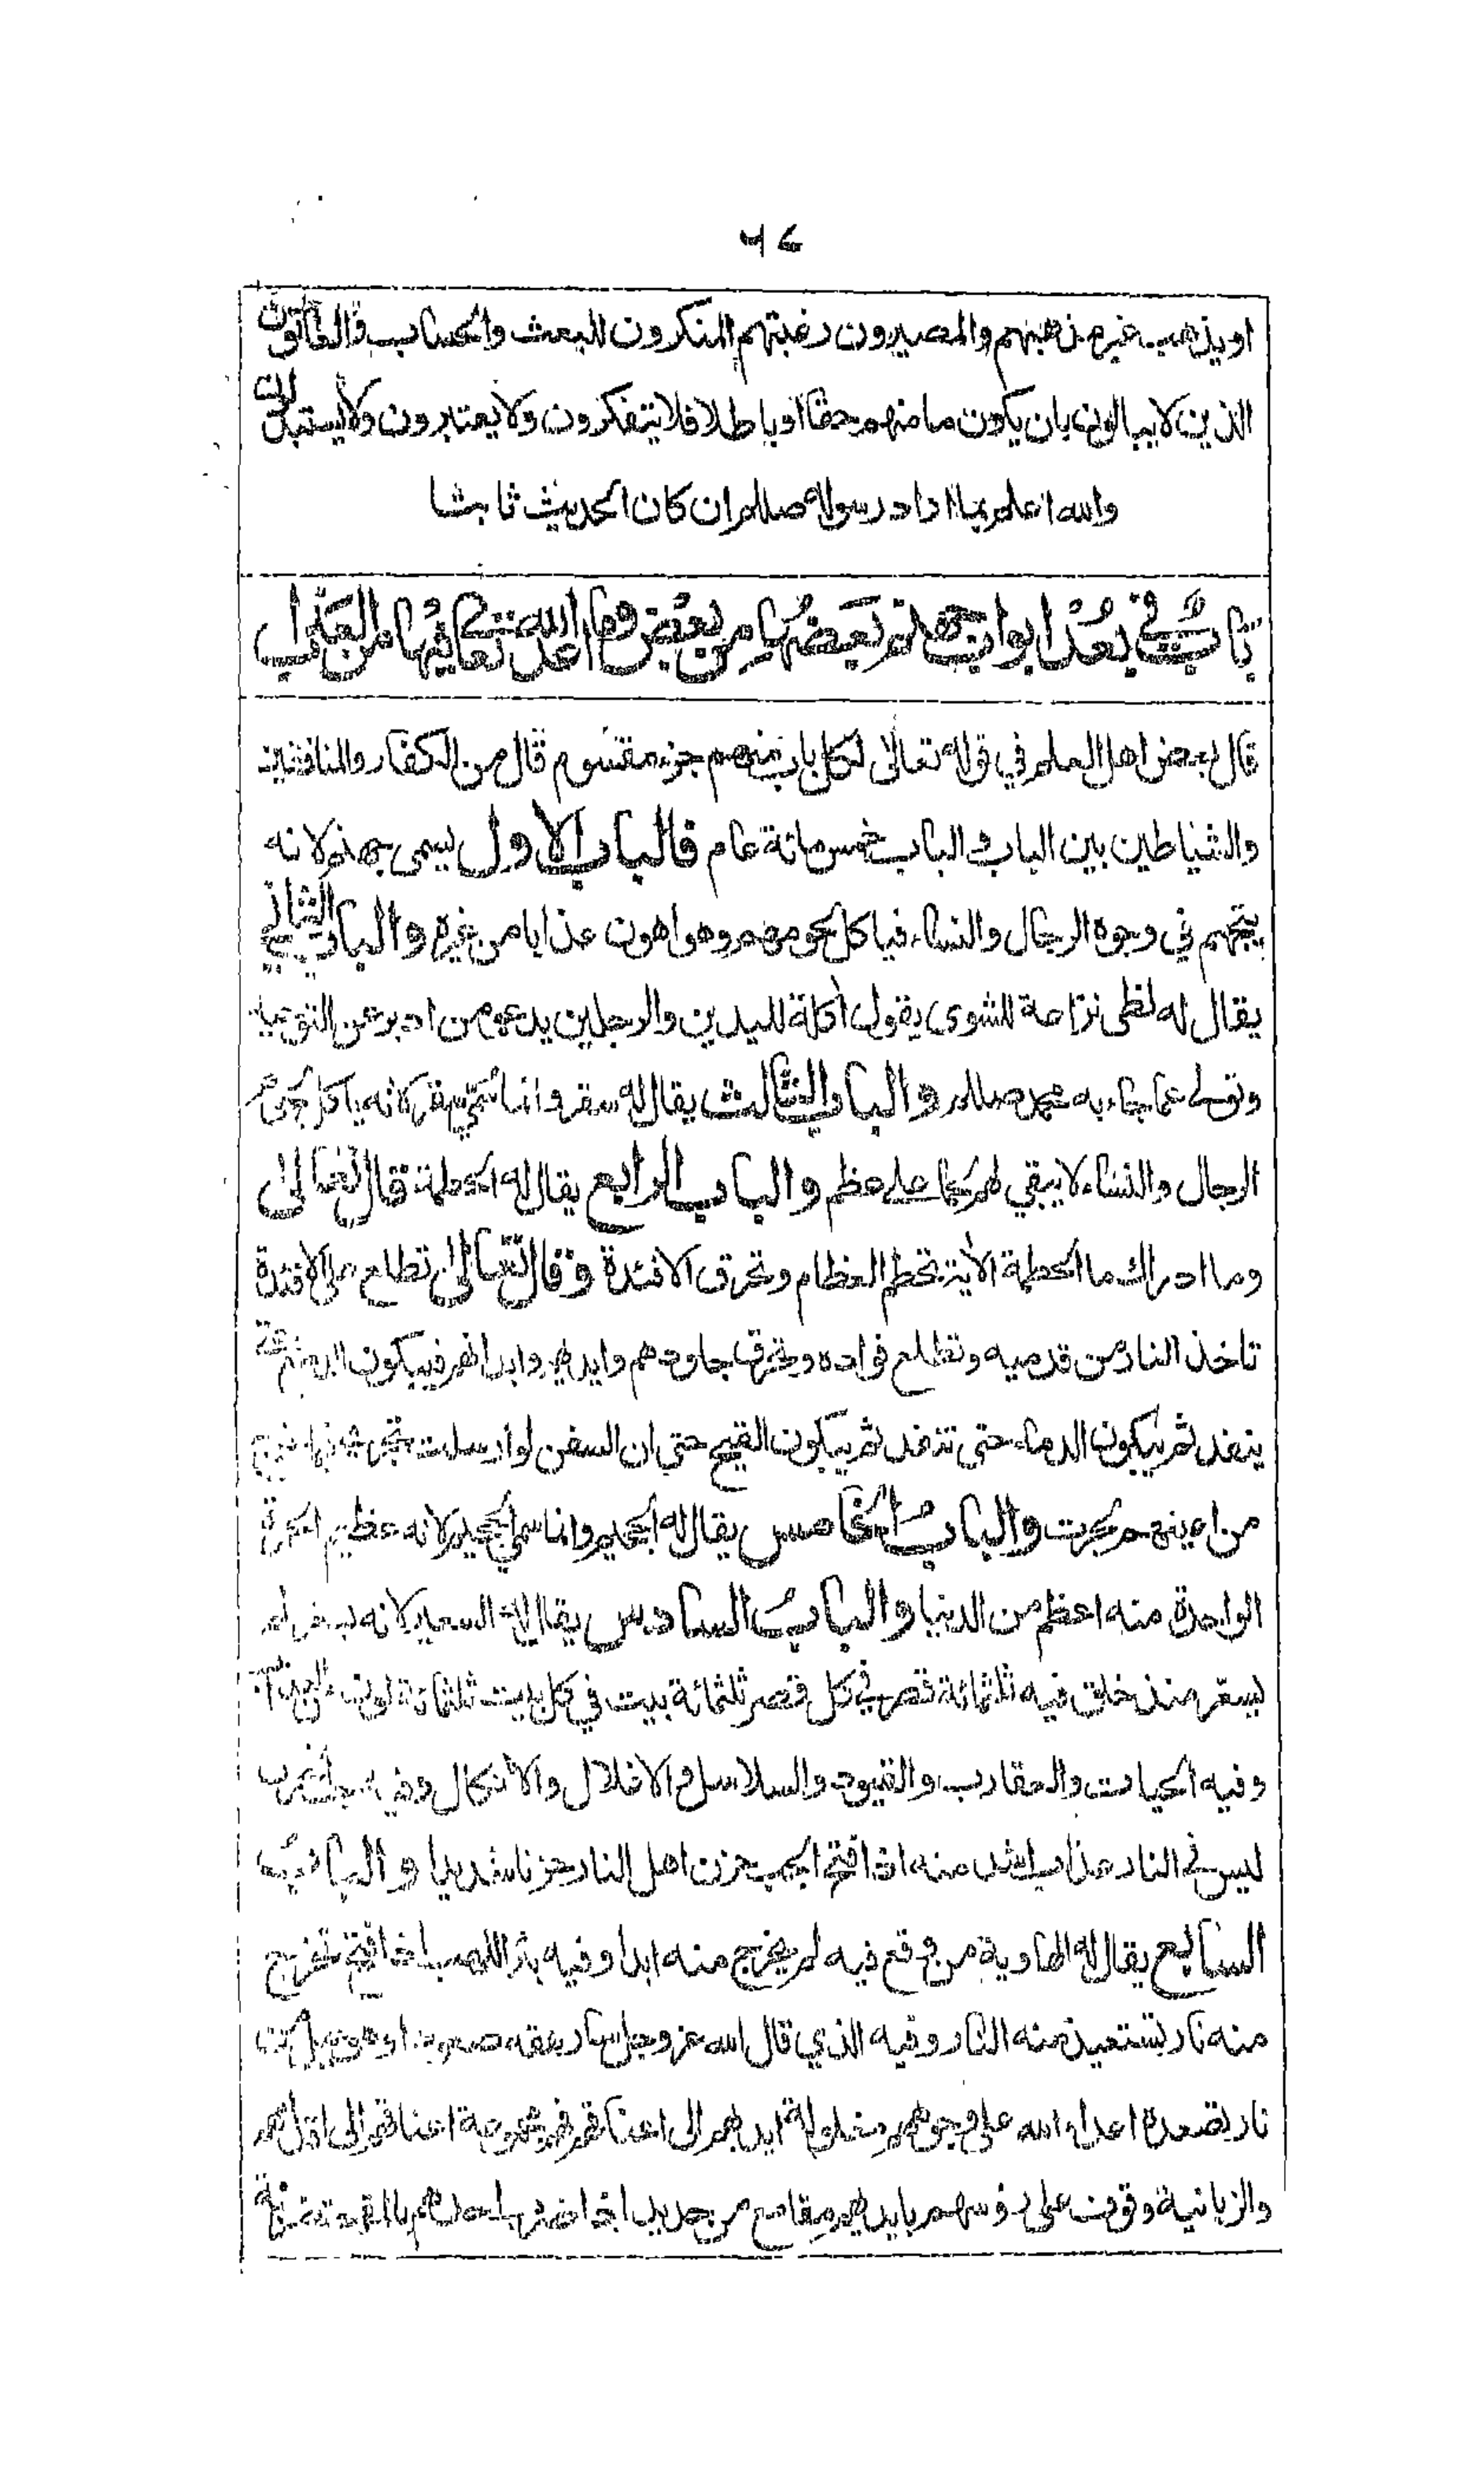 ٤٦
او يذهب غيرم ذهبتهم والمصيرون رغبتهم المنكرون للبعث والحساب والغافلون
الذين لا يبالون بان يكون ما منهم حقا او باطلا فلا يتفكرون ولا يعتبرون ولا يستدلون
والله اعلم بما اراد رسوله صللم ان كان الحديث ثابتا
بَابٌ في بُعْد ابواب جهنم بَعضُها من بعض وما اعد الله تعالى فيها من العَذَاب
قال بعض اهل العلم في قوله تعالى لكل باب منهم جزء مقسوم قال من الكفار والمنافقين
والشياطين بين الباب والباب خمس مائة عام فالباب الاول يسمى جهنم لانه
يتجهم في وجوه الرجال والنساء فياكل لحومهم وهو اهون عذابا من غيره والباب الثاني
يقال له لظى نزاعة للشوى يقول اكلة لليدين والرجلين يدعو من ادبر عن التوحيد
وتولى عما جاء به محمد صللم والباب الثالث يقال له سقر وانما سمي سقر لانه ياكل لحوم
الرجال والنساء لا يبقي لهم لحما على عظم والباب الرابع يقال له الحطمة قال تعالى
وما ادراك ما الحطمة الاية تحطم العظام وتحرق الافئدة وقال تعالى تطلع على الافئدة
تاخذ النار من قدميه وتطلع فواده وتحرق جلودهم وايديهم وابدانهم فيبكون الدمع حتى
ينفد ثم يبكون الدماء حتى تنفد ثم يبكون القيح حتى ان السفن لو ارسلت تجري فيما خرج
من اعينهم لجرت والباب الخامس يقال له الجحيم وانما سمي الجحيم لانه عظيم الجمرة
الواحدة منه اعظم من الدنيا والباب السادس يقال له السعير لانه يسعر لم
يسعّر منذ خلق فيه ثلثمائة قصر في كل قصر ثلثمائة بيت في كل بيت ثلثمائة لون من العذاب
وفيه الحيات والعقارب والقيود والسلاسل والاغلال والانكال وفيه جب الحزن
ليس في النار عذاب اشد منه اذا فتح الجب حزن اهل النار حزنا شديدا والباب
السابع يقال له الهاوية من وقع فيه لم يخرج منه ابدا وفيه بئر اللهب اذا فتح تخرج
منه نار تستعيذ منه النار وفيه الذي قال الله عز وجل سارهقه صعودا وهو جبل من
نار تصعده اعداء الله على وجوههم مغلولة ايديهم الى اعناقهم مجموعة اعناقهم الى اقدامهم
والزبانية وقوف على رؤسهم بايديهم مقامع من حديد اذا ضرب احدهم بالمقمعة ضربة